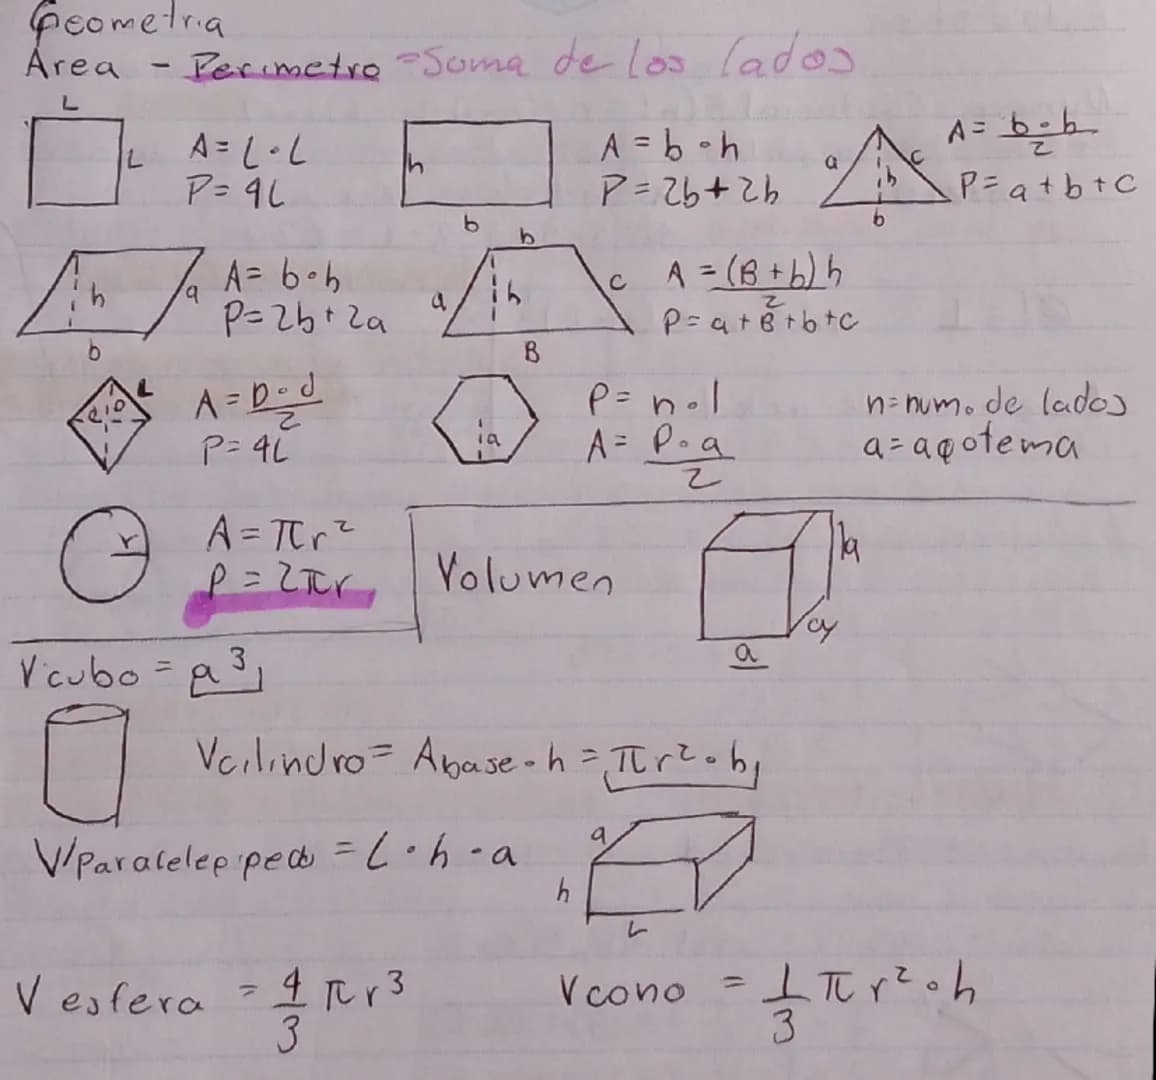 Geometria
Area - Perimetro = Suma de los lados
L
L
A = L · L
P = 4L
h
b
A = b · h
P = 2b + 2h
a
c
h
b
A = b · h / 2
P = a + b + c
h
a
b
A = b · h
P = 2b + 2a
b
a
h
c
B
A = (B + b) h / 2
P = a + B + b + c
L
d
D
A = D · d / 2
P = 4L
a
P = n · l
A = P · a / 2
n = num. de lados
a = apotema
r
A = πr²
P = 2πr
Volumen
a
a
a
Vcubo = a³
Vcilindro = Abase · h = πr² · h
V/paralelepipedo = L · h · a
a
h
L
V esfera = 4/3 πr³
Vcono = 1/3 πr² · h